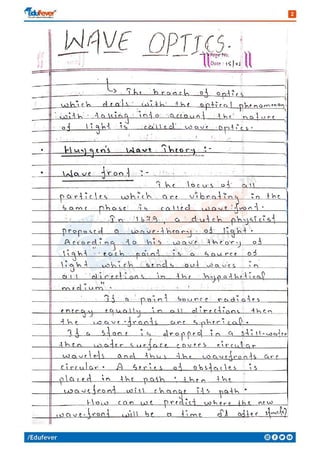 Edufever
2
WAVE OPTICS.
Page No.
Date: 15/02
↳ The branch of optics
which deals with the optical phenomenon
with taking into account the nature
of light is called wave optics.
• Huygen's Wave Theory :-
• Wave front :-
The locus of all
particles which are vibrating in the
same phase is called wave-front.
In 1679, a dutch physicist
proposed a wave-theory of light.
According to his wave theory of
light "each point is a source of
light which sends out waves in
all directions in the hypothetical
medium".
If a point source radiates
energy equally in all directions then
the wave-fronts are spherical.
If a stone is dropped in a still-water
then water surface covers circular
wavelets and thus the wavefronts are
circular. A series of obstacles is
placed in the path, then the
wavefront will change its path.
How can we predict where the new
wave-front will be a time after
/Edufever